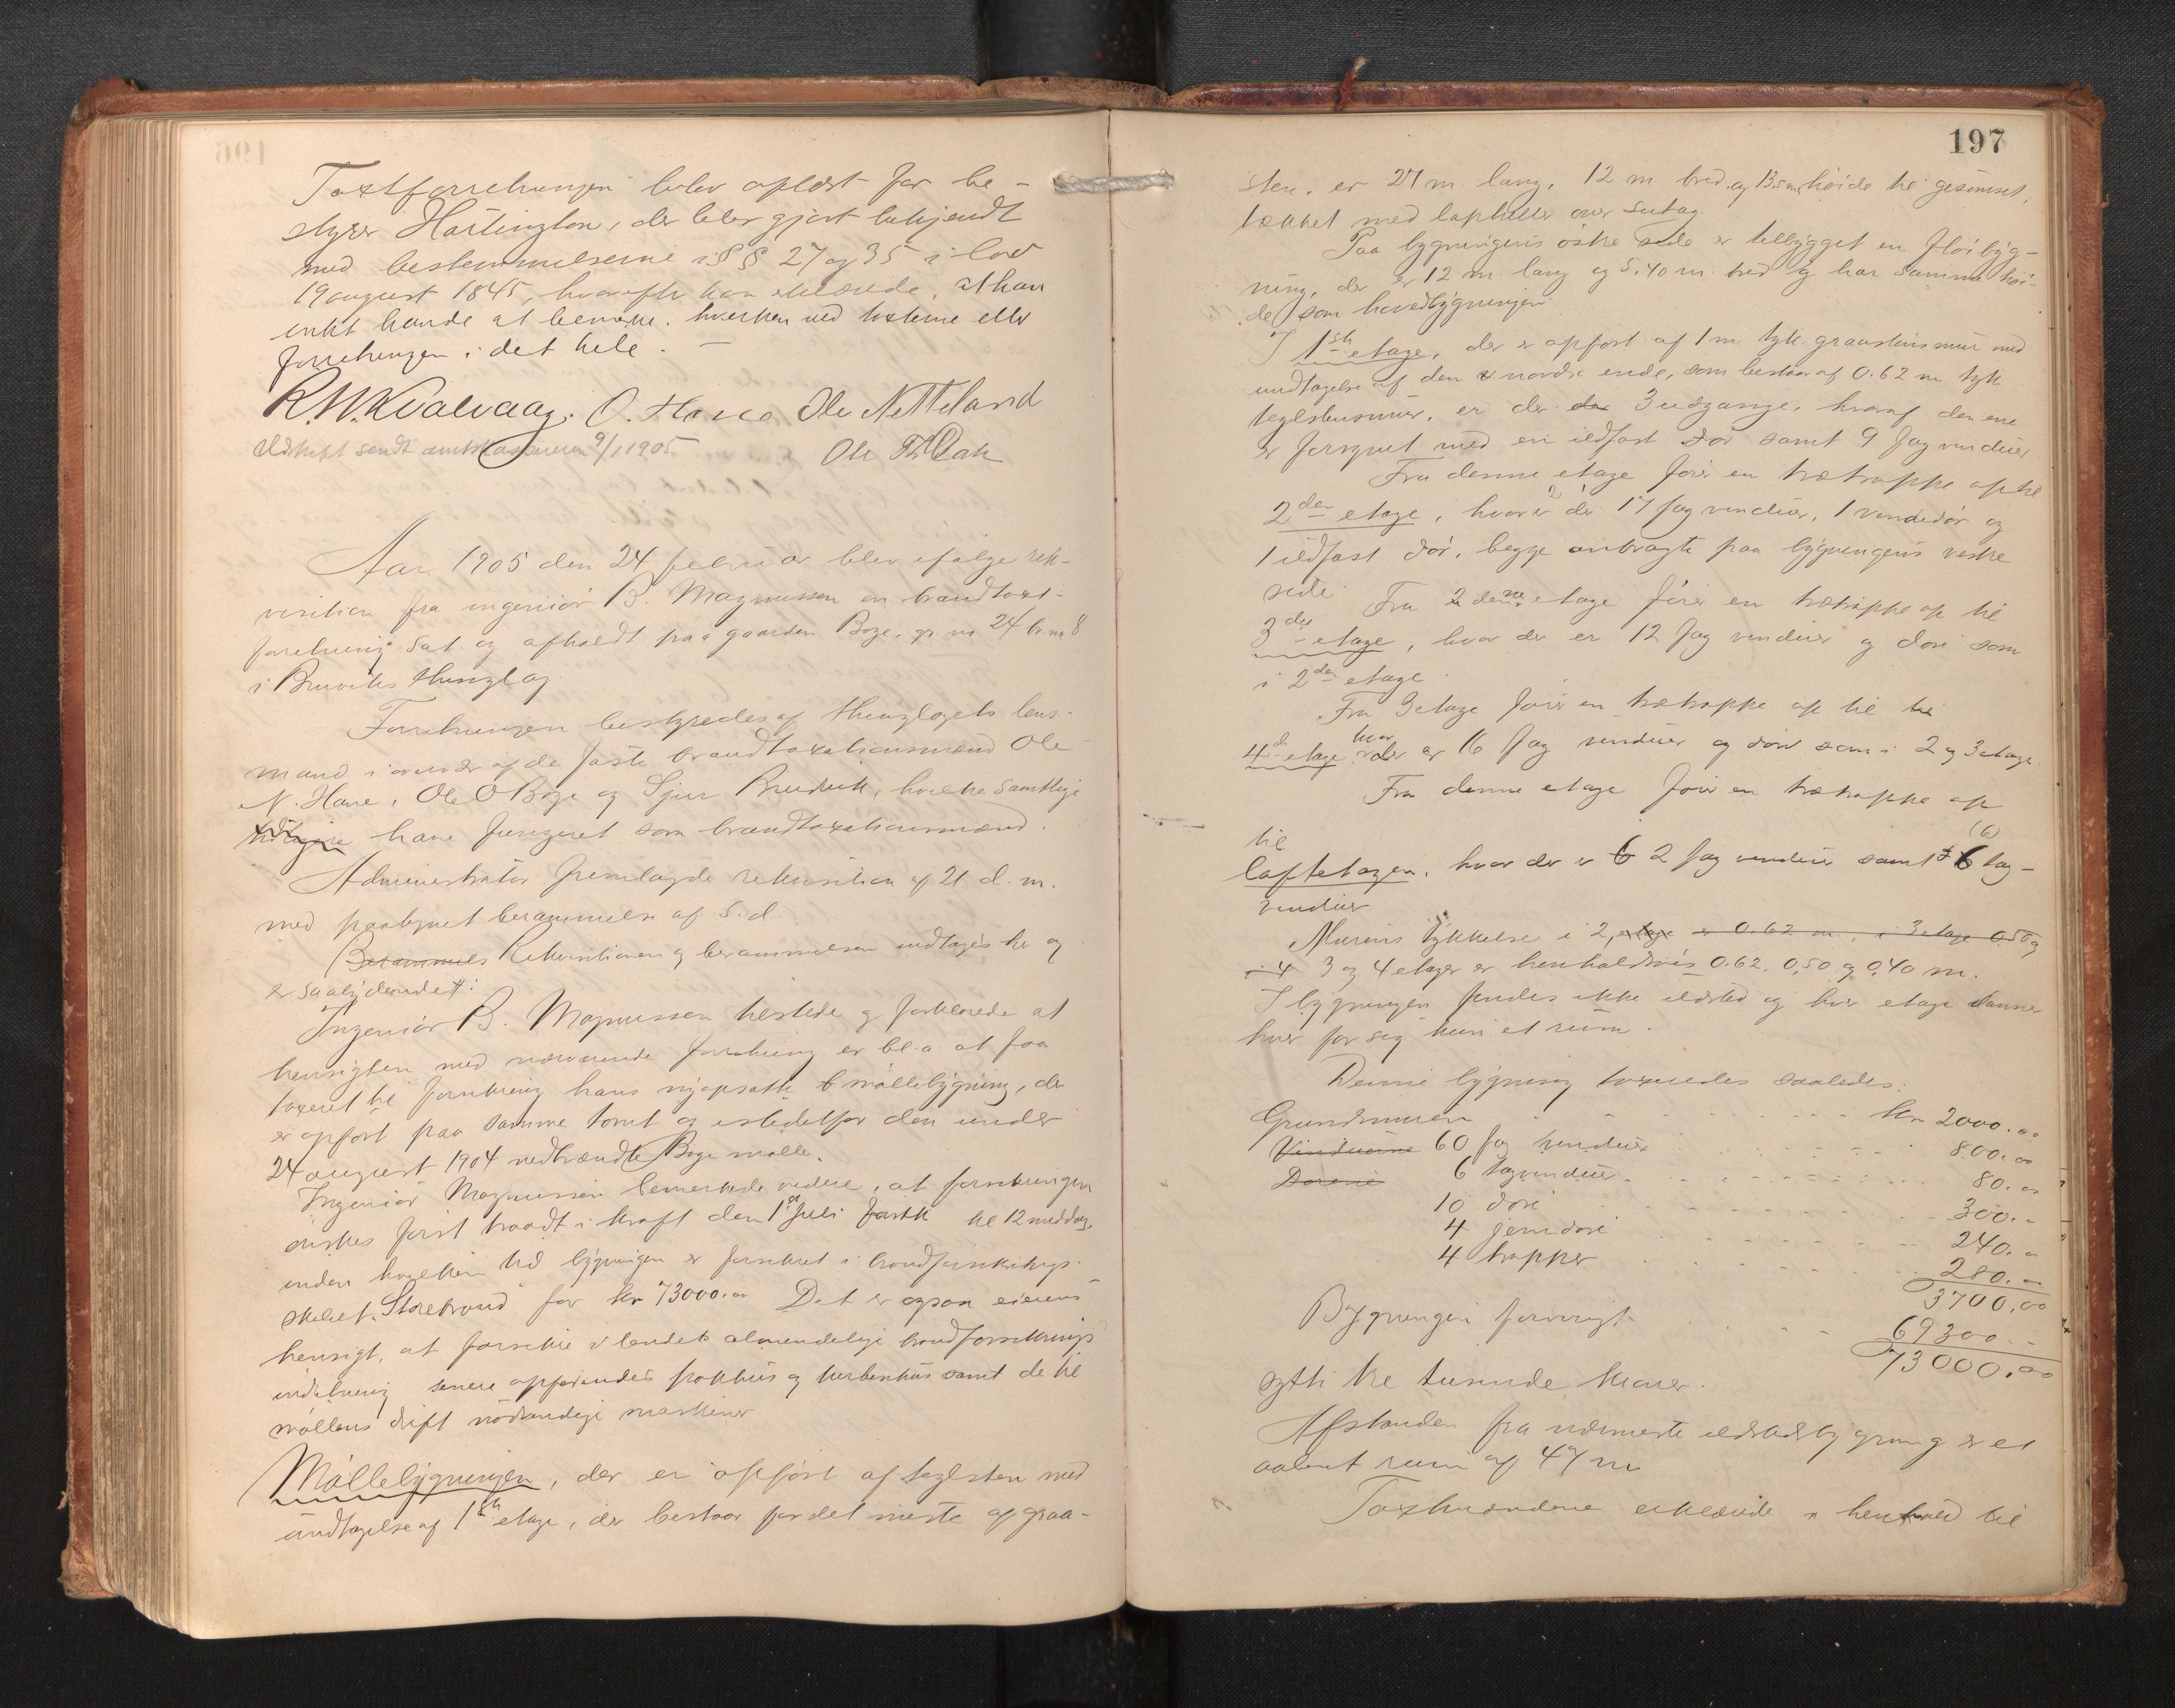 Taxtforretningen blev oplæst for be-
styrer Hartington, der blev gjort bekjendt
med bestemmelserne i §§ 27 og 35 i lov
19 august 1845, hvorefter han erklærede, at han
intet havde at bemærke hverken ved taxterne eller
forretningen i det hele. —
R.W. Kvalvaag. O. Have Ole Netteland
Udskrift sendt amtskassereren 9/1 1905
Ole Th Dale
Aar 1905 den 24 februar blev ifølge rek-
visition fra ingeniör B. Magnussen en brandtaxt-
forretning sat og afholdt paa gaarden Boge, gr no 24 br no 8
i Bruviks thinglag
Forretningen bestyredes af thinglagets lens-
mand i overvær af de faste brandtaxationsmænd Ole
N. Have, Ole O Boge og Sjur Bruvik, hvilke samtlige
tidligere have fungeret som brandtaxationsmænd.
Administrator fremlagde rekvisition af 21 d. m.
med paategnet berammelse af s. d.
Berammels Rekvisitionen og berammelsen indtages her og
er saalydende:
Ingeniör B. Magnussen tilstede og forklarede at
hensigten med nærværende forretning er bl. a. at faa
taxeret til forsikring hans nyopsatte møllebygning, der
er opført paa samme tomt og istedetfor den under
24 august 1904 nedbrændte Boge mølle.
Ingeniör Magnussen bemerkede videre, at forsikringen
ønskes först traadt i kraft den 1ste Juli førstk kl 12 middag,
inden hvilken tid bygningen er forsikret i brandforsikrings-
selskabet "Storebrand" for kr 73000.00 Det er ogsaa eierens
hensigt, at forsikre i landets almindelige brandforsikrings
indretning senere opførendes pakhus og turbinhus samt de til
møllens drift nödvendige maskiner
Møllebygningen, der er opført af teglsten med
undtagelse af 1ste etage, der bestaar for det meste af graa-
197
sten, er 27 m. lang, 12 m bred og 13.5 m høide til gesimset,
tækket med tapheller over sutag.
Paa bygningens östre side er tilbygget en flöibyg-
ning, der er 12 m. lang og 5,40 m. bred og har samme høi-
de som hovedbygningen.
I 1ste etage, der er opført af 1 m tyk graastensmur med
undtagelse af den nordre ende, som bestaar af 0.62 m tyk
teglstensmur, er der 3 udgange, hvoraf den ene
er forsynet med en ildfast dör samt 9 fag vinduer
Fra denne etage förer en trætrappe op til
2den etage, hvor er der 17 fag vinduer, 1 vindedör og
1 ildfast dör, begge anbragte paa bygningens vestre
side. Fra 2 denne etage förer en trætrappe op til
3die etage, hvor der er 12 fag vinduer og döre som
i 2den etage.
Fra 3 etage förer en trætrappe op til til
4de etage hvor der er 16 fag vinduer og döre som i 2 og 3 etage.
Fra denne etage förer en trætrappe op
til
loftetagen, hvor der er 6 2 fag vinduer samt 6 (6) tag-
vinduer
Murens tykkelse i 2, etage er 0.62 m, i 3 etage 0,50 og
i 4 3 og 4 etager er henholdsvis 0.62, 0,50 og 0,40 m.
I bygningen findes ikke ildsted og hver etage danner
hver for sig kun et rum.
Denne bygning taxeredes saaledes:
Grundmuren kr 2000.00
Vinduerne 60 fag vinduer 800.00
Dørene 6 tagvinduer 80.00
10 döre 300.-
4 jerndöre 240.00
4 trapper 280.00
3700.00
Bygningen forøvrigt 69300.-
73000.00
sytti tre tusinde kroner.
Afstanden fra nærmeste ildstedsbygning er et
aabent rum af 47 m
Taxtmændene erklærede i henhold til